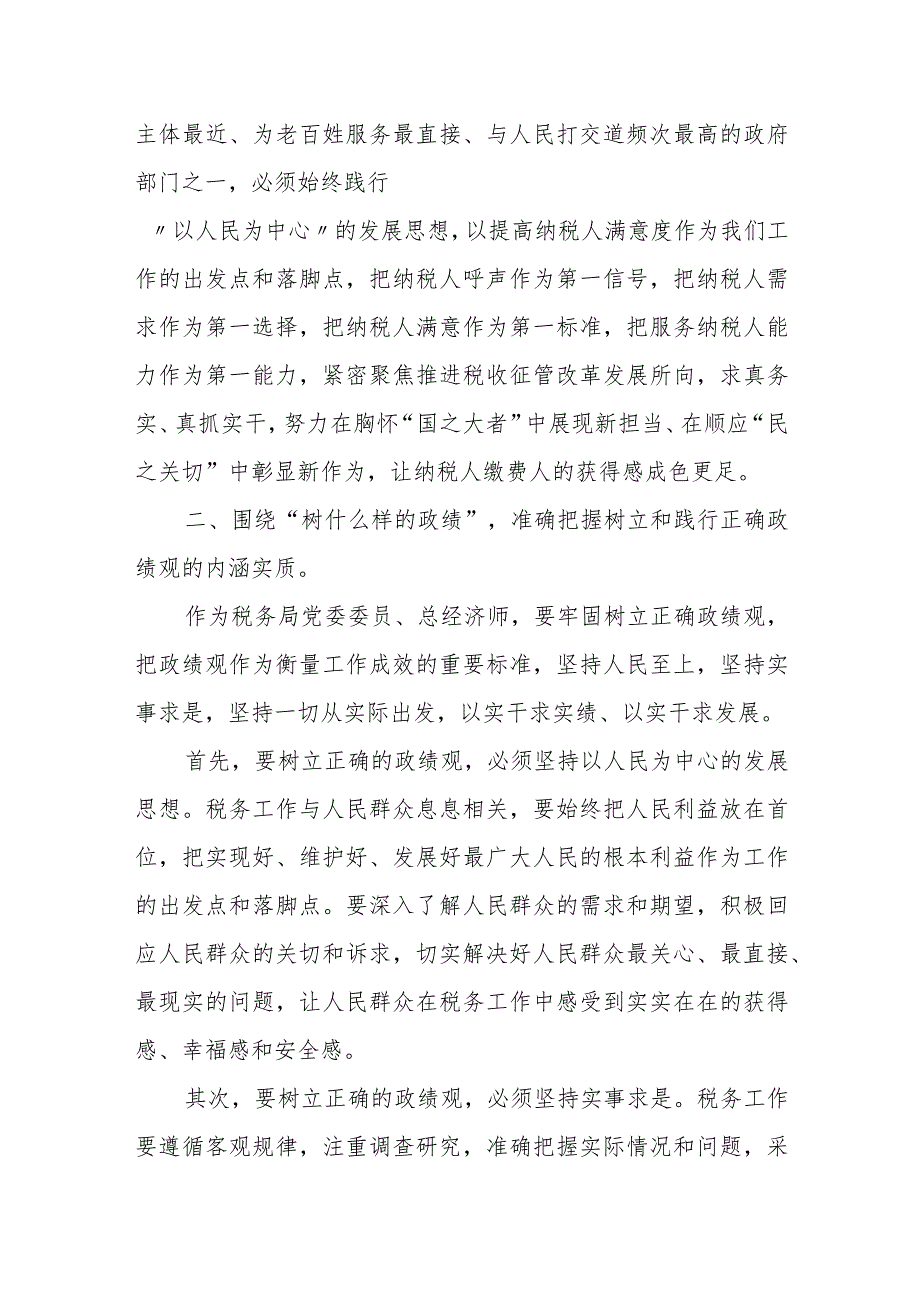 主体最近、为老百姓服务最直接、与人民打交道频次最高的政府
部门之一，必须始终践行
〃以人民为中心〃的发展思想，以提高纳税人满意度作为我们工
作的出发点和落脚点，把纳税人呼声作为第一信号，把纳税人需
求作为第一选择，把纳税人满意作为第一标准，把服务纳税人能
力作为第一能力，紧密聚焦推进税收征管改革发展所向，求真务
实、真抓实干，努力在胸怀“国之大者”中展现新担当、在顺应“民
之关切”中彰显新作为，让纳税人缴费人的获得感成色更足。
二、围绕“树什么样的政绩”，准确把握树立和践行正确政
绩观的内涵实质。
作为税务局党委委员、总经济师，要牢固树立正确政绩观，
把政绩观作为衡量工作成效的重要标准，坚持人民至上，坚持实
事求是，坚持一切从实际出发，以实干求实绩、以实干求发展。
首先，要树立正确的政绩观，必须坚持以人民为中心的发展
思想。税务工作与人民群众息息相关，要始终把人民利益放在首
位，把实现好、维护好、发展好最广大人民的根本利益作为工作
的出发点和落脚点。要深入了解人民群众的需求和期望，积极回
应人民群众的关切和诉求，切实解决好人民群众最关心、最直接、
最现实的问题，让人民群众在税务工作中感受到实实在在的获得
感、幸福感和安全感。
其次，要树立正确的政绩观，必须坚持实事求是。税务工作
要遵循客观规律，注重调查研究，准确把握实际情况和问题，采